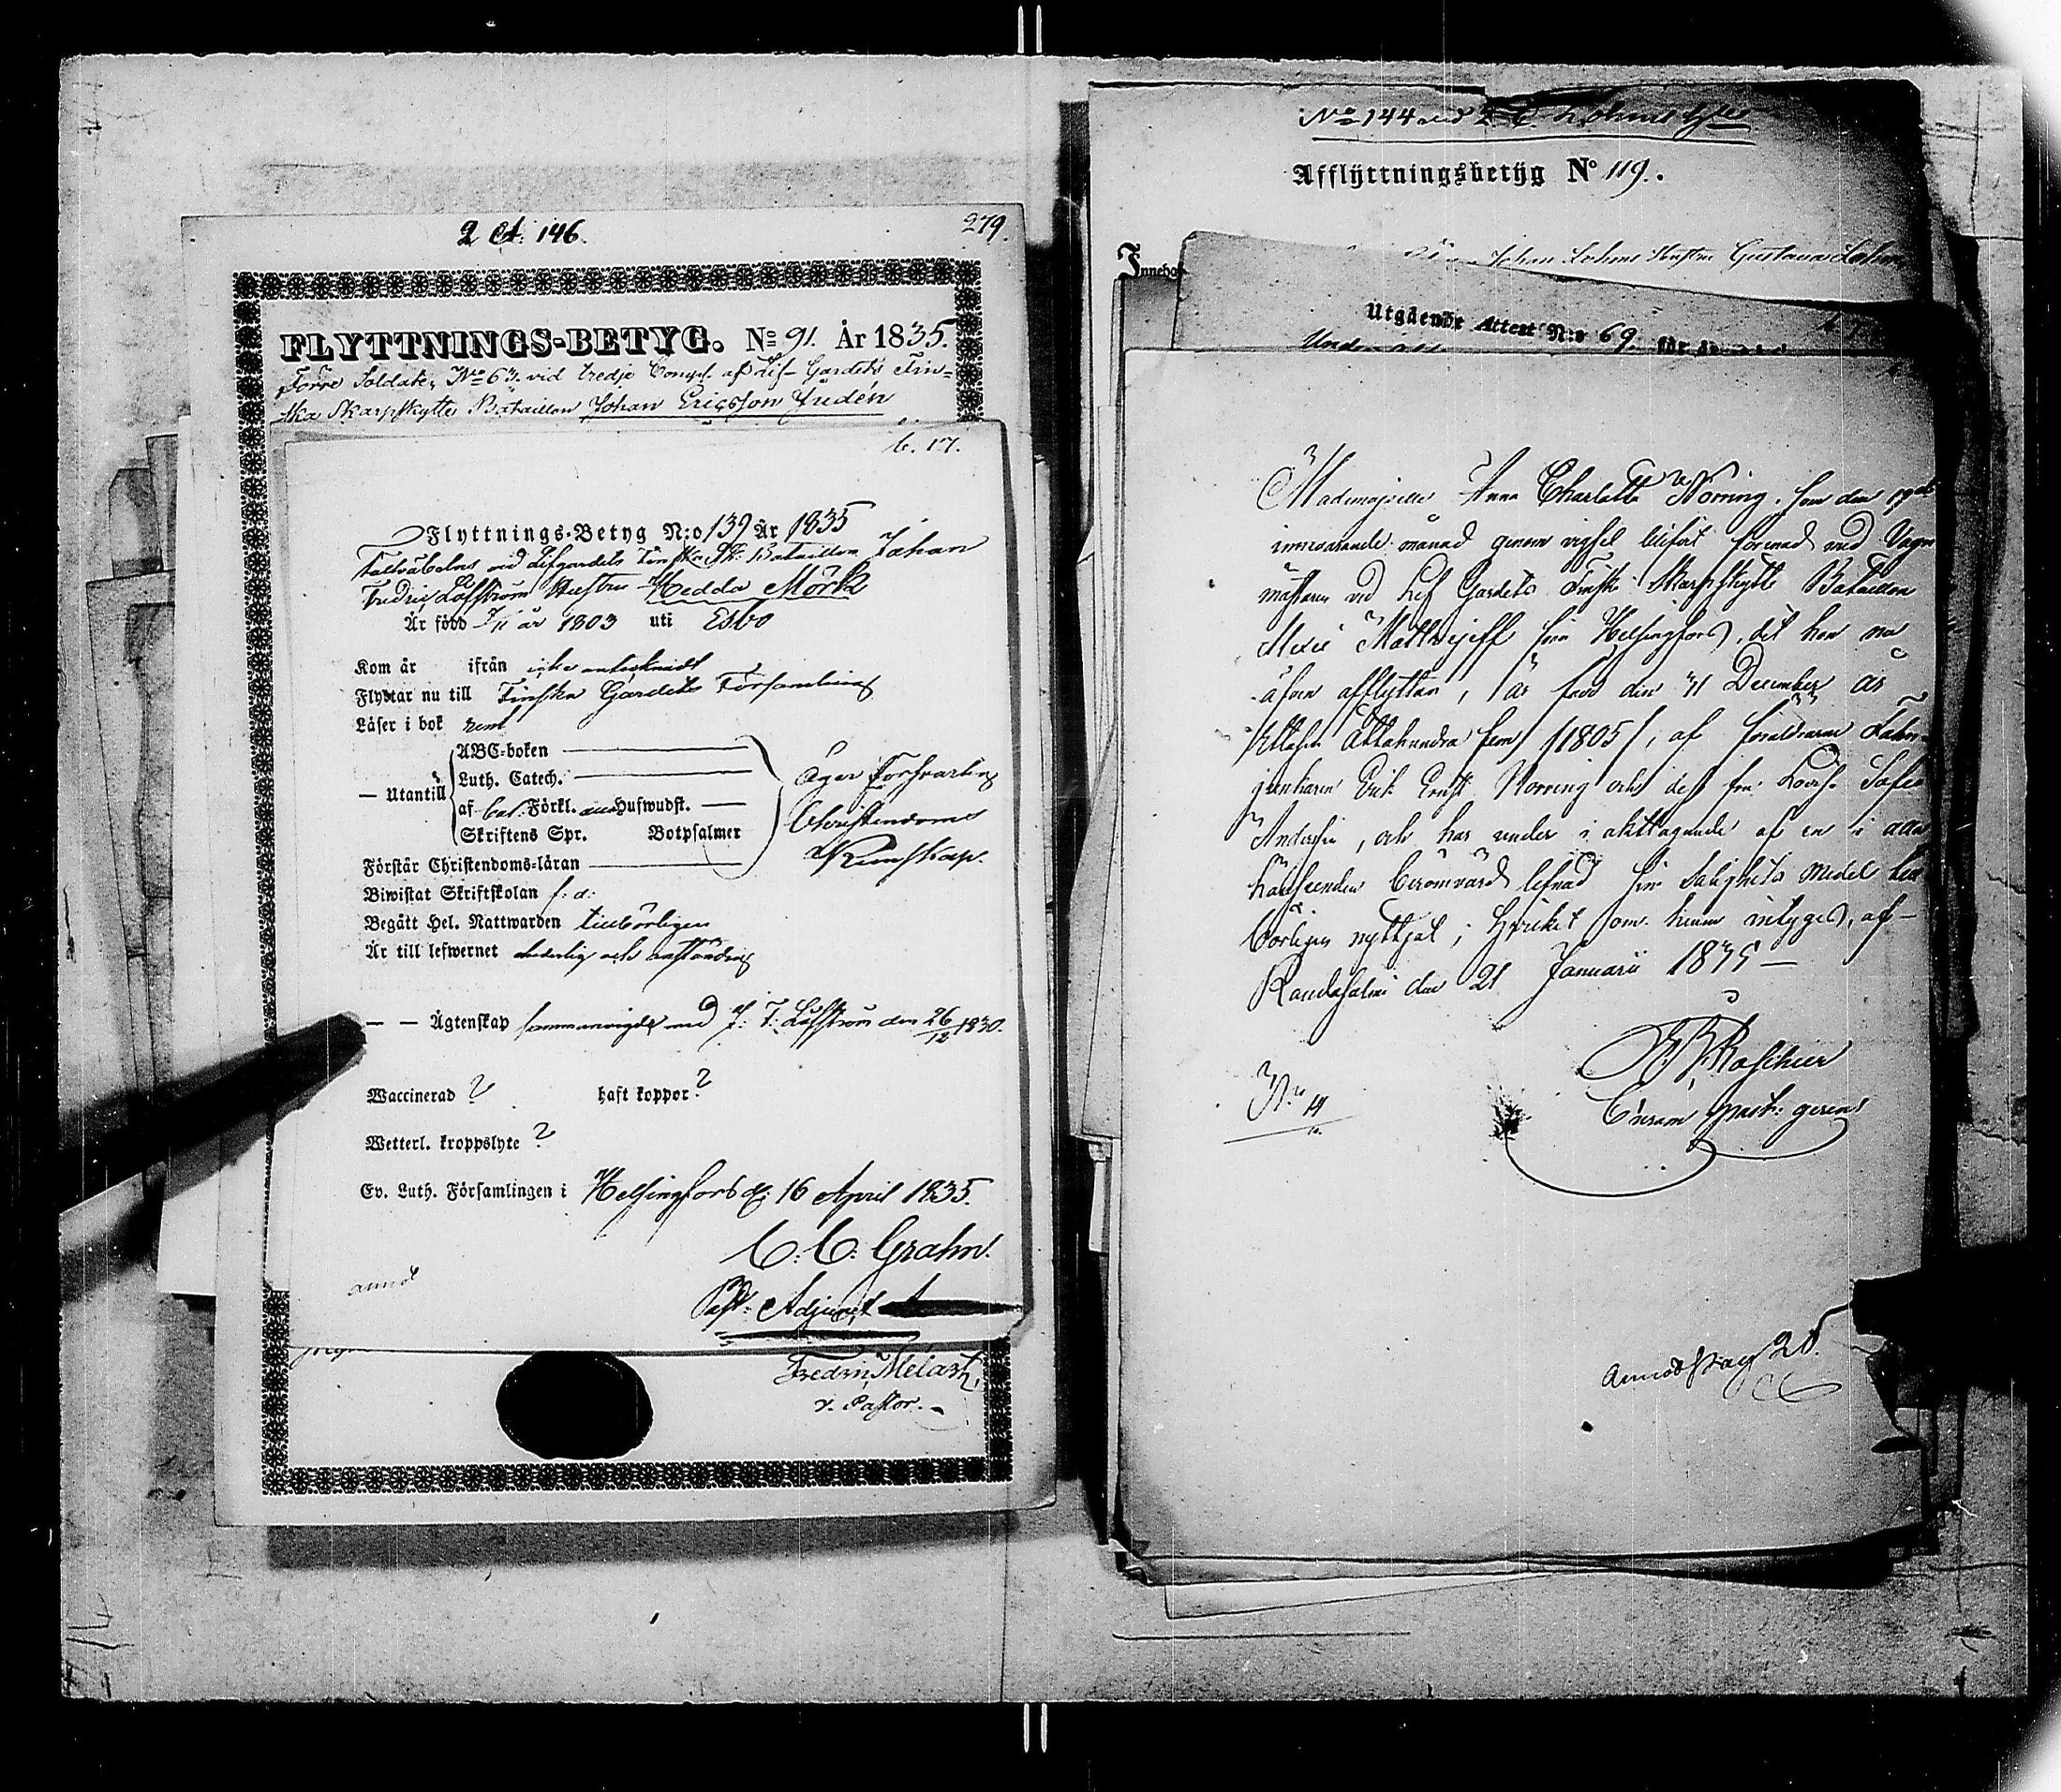 2 A. 146.
279.
FLYTTNINGS-BETYG. No 91. År 1835.
Förre Soldaten No 63. vid tredje Comp. af Lif-Gardets Fin-
ska Skarpskytte Bataillon Johan Ericsson Judén
b. 17.
Flyttnings-Betyg N:o 139 År 1835
Fältväbelns vid Lifgardets Finska Sk: Bataillon Johan
Fredric Löfström Hustru Hedda Mörk
Är född 7/11 år 1803 uti Esbo
Kom år ifrån icke antecknadt
Flyttar nu till Finska Gardets Församling
Läser i bok rent
— Utantill
ABC-boken
Luth. Catech.
af Cat. Förkl. Hufwudst.
Skriftens Spr. Botpsalmer
Förstår Christendoms-läran
Äger Försvarlig
Christendoms
Kunskap.
Biwistat Skriftskolan f: d:
Begått Hel. Nattwarden tillbörligen
Är till lefwernet anständig
— — Ägtenskap sammanvigde med J: F: Löfström den 26/12 1830.
Waccinerad ? haft koppor ?
Wetterl. kroppslyte ?
Ev. Luth. Församlingen i Helsingfors d: 16 April 1835.
C. C. Grahn.
Past: Adjunct
annot
Fredric Melart,
v. Pastor.
No 144 2
Afflyttningsbetyg No 119.
Inneha
Johan Hustru Gustava
Utgående Attest N:o 69. för
Mademoiselle Anna Charlotta Norring, som den
innevarande månad genom vigsel blifvit förenad med Vagn
mästaren vid Lif Gardets Finska Skarpskytte Bataillon
Alexei Mattvejeff från Helsingfors, dit hon nu
äfven afflyttar, är född den 31 December år
Ettusen Åttahundra fem /1805/, af föräldrarne Fahn-
junkaren Erik Ernst Norring och dess fru Lovisa Sofia
Andersin, och har under i akttagande af en i alla
hänseenden berömvärd lefnad sin Salighets medel till
börligen nyttjat; hvilket om henne intygas, af
Randasalmi den 21 Januarii 1835 —
Roschier
past: gerens
No 14
Annot pag 28.